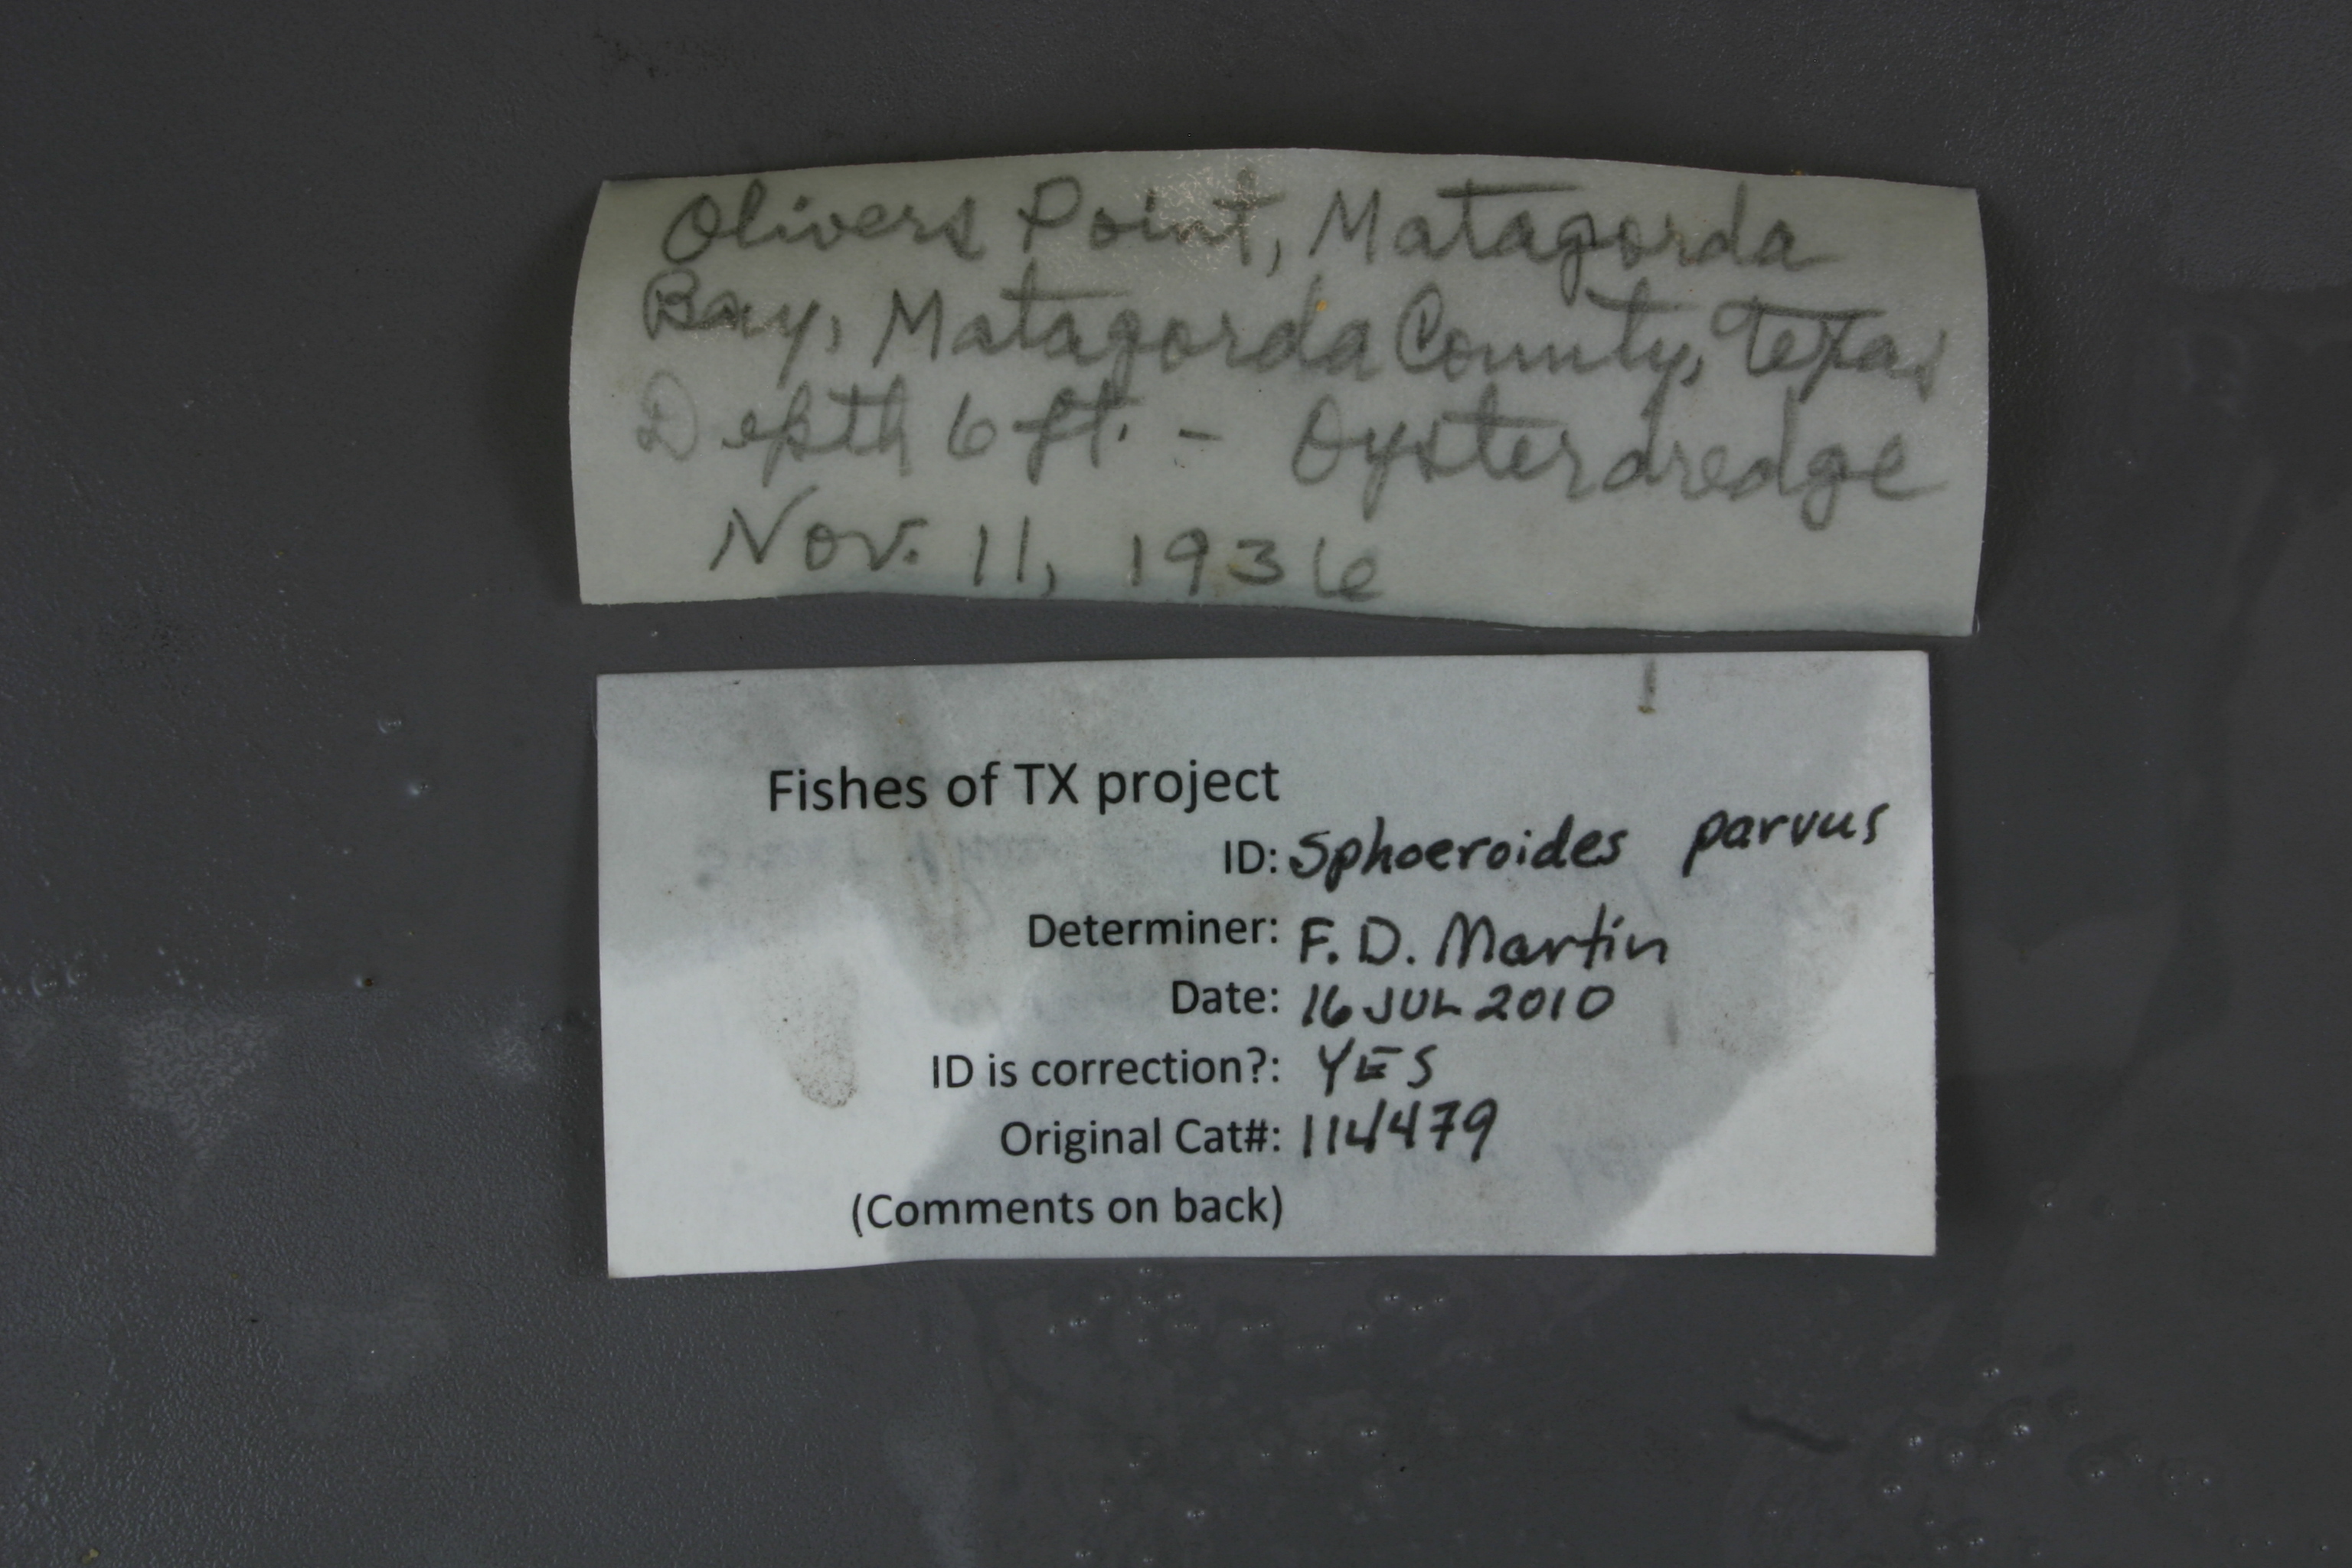 Olivers Point, Matagorda
Bay, Matagorda County, Texas
Depth 6 ft. - Oysterdredge
Nov. 11, 1936
Fishes of TX project
ID: Sphoeroides parvus
Determiner: F. D. Martin
Date: 16 JUL 2010
ID is correction?: YES
Original Cat#: 114479
(Comments on back)